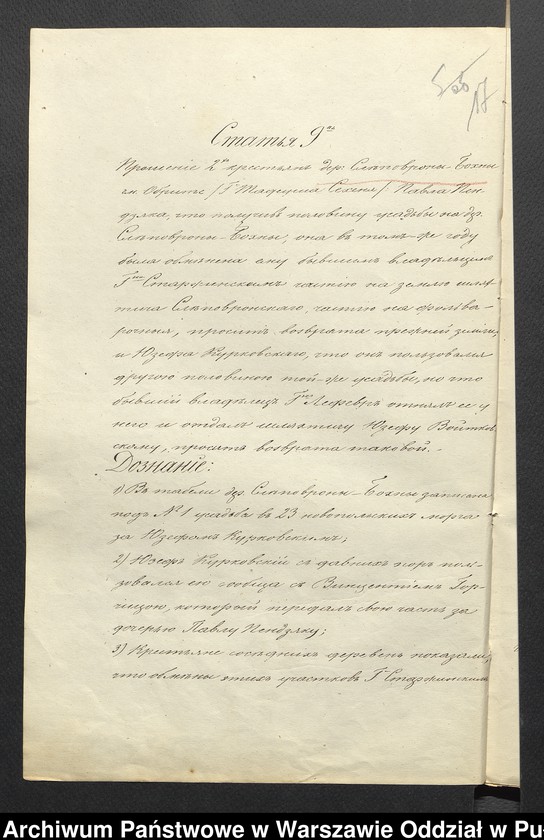 17
Статья 9ая
Прошеніе 2хъ крестьянъ дер: Слѣповроны-Бохны
гм. Обрыте /Гна Тадеуша Сехеня/ Павла Пен-
дзяка, что получивъ половину усадьбы на др.
Слѣповроны-Бохны, она въ томъ-же году
была обмѣнена ему бывшимъ владѣльцемъ
Гмъ Старжинскимъ частію на землю шлях-
тича Слѣповронскаго, частію на фольва-
рочныя, проситъ возврата прежней земли,
и Юзефа Курковскаго, что онъ пользовался
другою половиною той-же усадьбы, но что
бывшій владѣлецъ Гнъ Лефевръ отнялъ ее у
него и отдалъ шляхтичу Юзефу Войтков-
скому, проситъ возврата таковой. -
Дознаніе:
1) Въ табели др. Слѣповроны-Бохны записана
подъ № 1 усадьба въ 23 новопольскихъ морга
за Юзефомъ Курковскимъ;
2) Юзефъ Курковскій съ давнихъ поръ поль-
зовался ею сообща съ Винцентіемъ Гор-
чицою, который передалъ свою часть за
дочерью Павлу Пендзяку;
3) Крестьяне сосѣднихъ деревень показали,
что обмѣны этихъ участковъ Г Старжинскимъ
Archiwum Państwowe w Warszawie Oddział w Pu